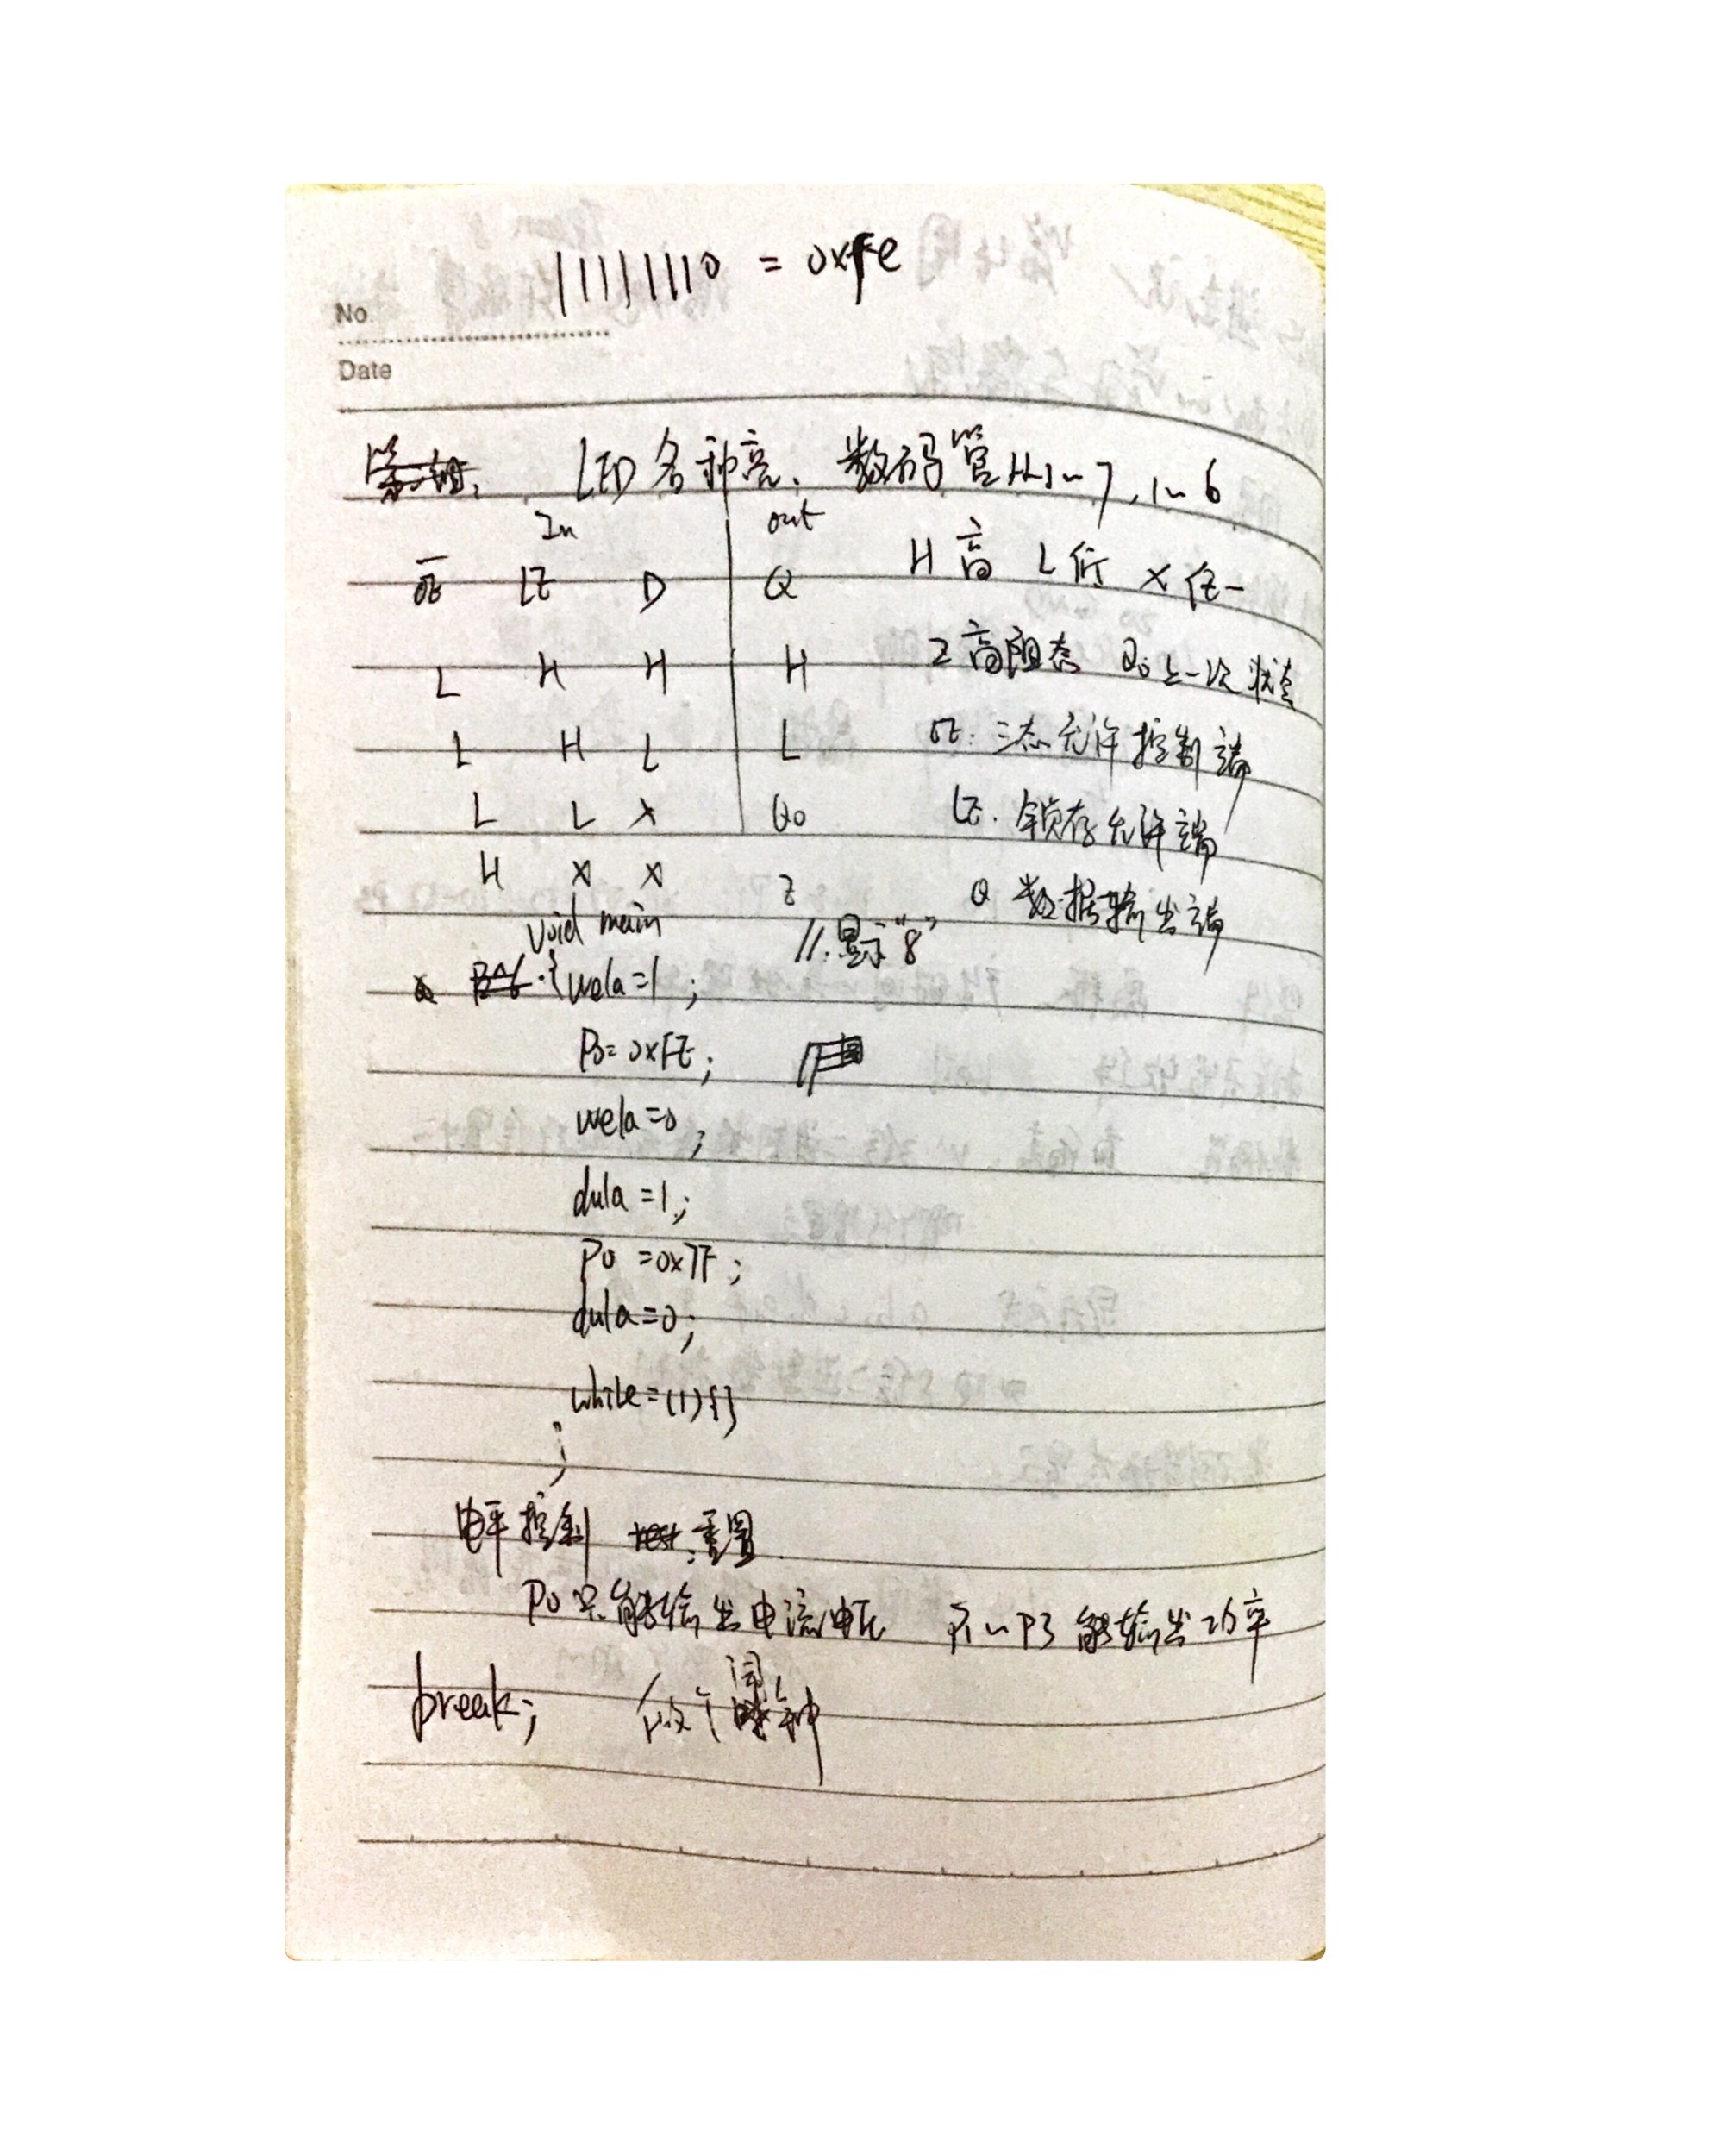 11111110 = 0xFe
No.
Date
LED各种亮、数码管 1~7, 1~6
In out
OE LE D Q H高 L低 X任一
L H H H Z高阻态 Q0上一次状态
L H L L OE:三态允许控制端
L L X Q0 LE.锁存允许端
H X X Z Q 数据输出端
void main //.显示"8"
{wela=1;
P0=0xFE;
wela=0;
dula=1;
P0=0x7F;
dula=0;
while=(1){}
;
电平控制 重置
P0只能输出电流/电压 P1~P3能输出功率
break; 做个闹钟